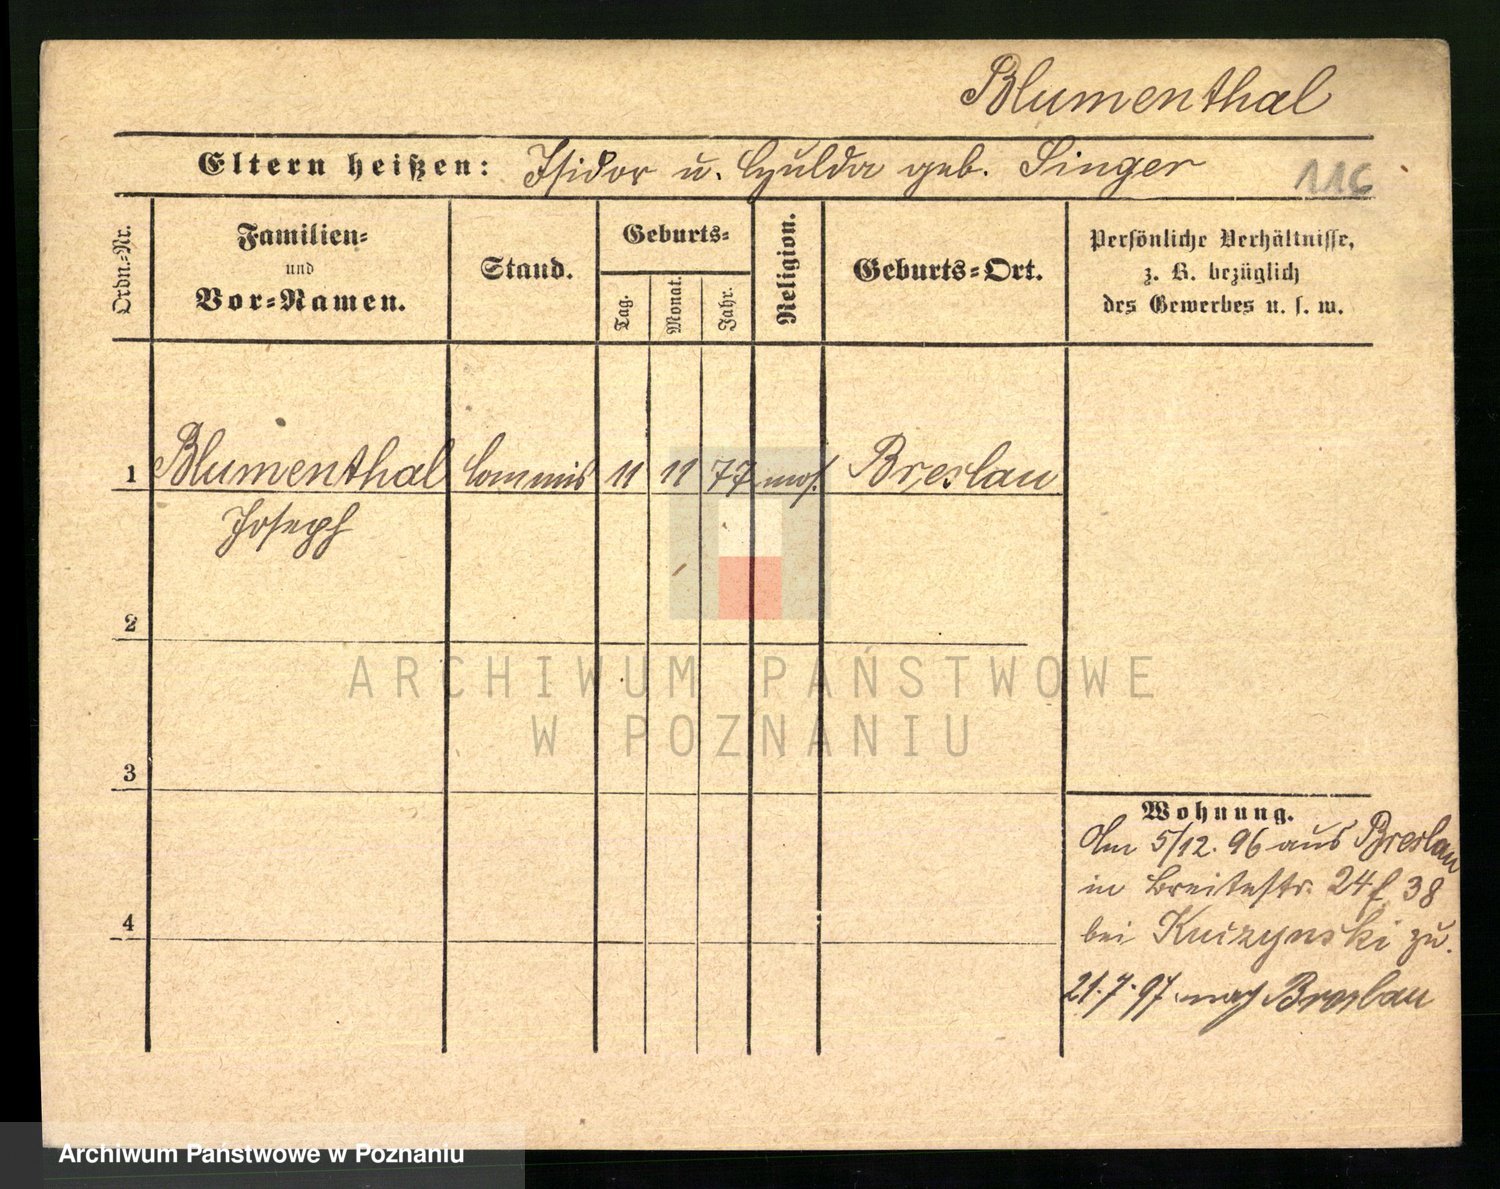 Blumenthal
Eltern heißen: Isidor u. Hulda geb. Singer
116
Ordn.-Nr.
Familien-
und
Vor-Namen.
Stand.
Geburts-
Tag.
Monat.
Jahr.
Religion.
Geburts-Ort.
Persönliche Verhältnisse,
z. B. bezüglich
des Gewerbes u. s. w.
1 Blumenthal Commis 11 11 77 mos. Breslau
Joseph
2
3
4
Wohnung.
Am 5/12. 96 aus Breslau
in Breitestr. 24 38
bei Kuczynski zu.
21.7.97 nach Breslau
ARCHIWUM PAŃSTWOWE
W POZNANIU
Archiwum Państwowe w Poznaniu